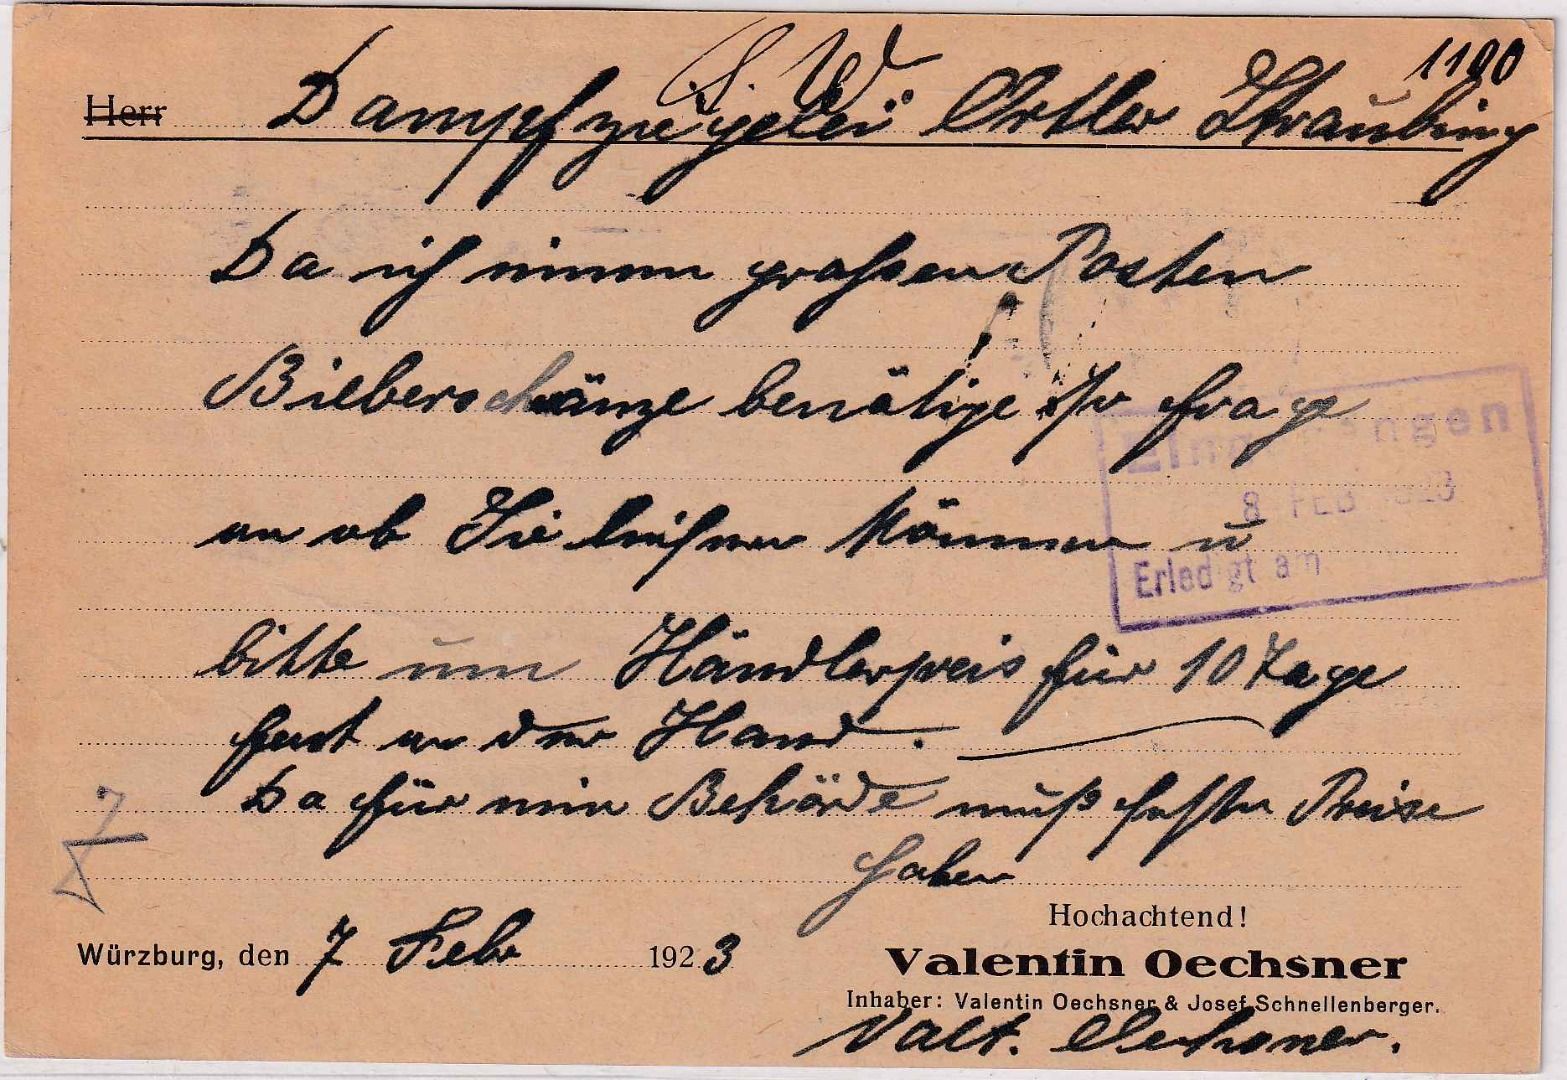 1100
Herr Dampfziegelei Ortler Straubing
Da ich einen großen Posten
Bieberschwänze benätige so frage
an ob Sie liefern können u
bitte um Händlerpreis für 10 Tage
fest an der Hand.
Da für eine Behörde muß feste Preise
haben
Eingegangen
8 FEB 1923
Erledigt am
Hochachtend!
Würzburg, den 7 Febr 1923
Valentin Oechsner
Inhaber: Valentin Oechsner & Josef Schnellenberger.
Valt. Oechsner.